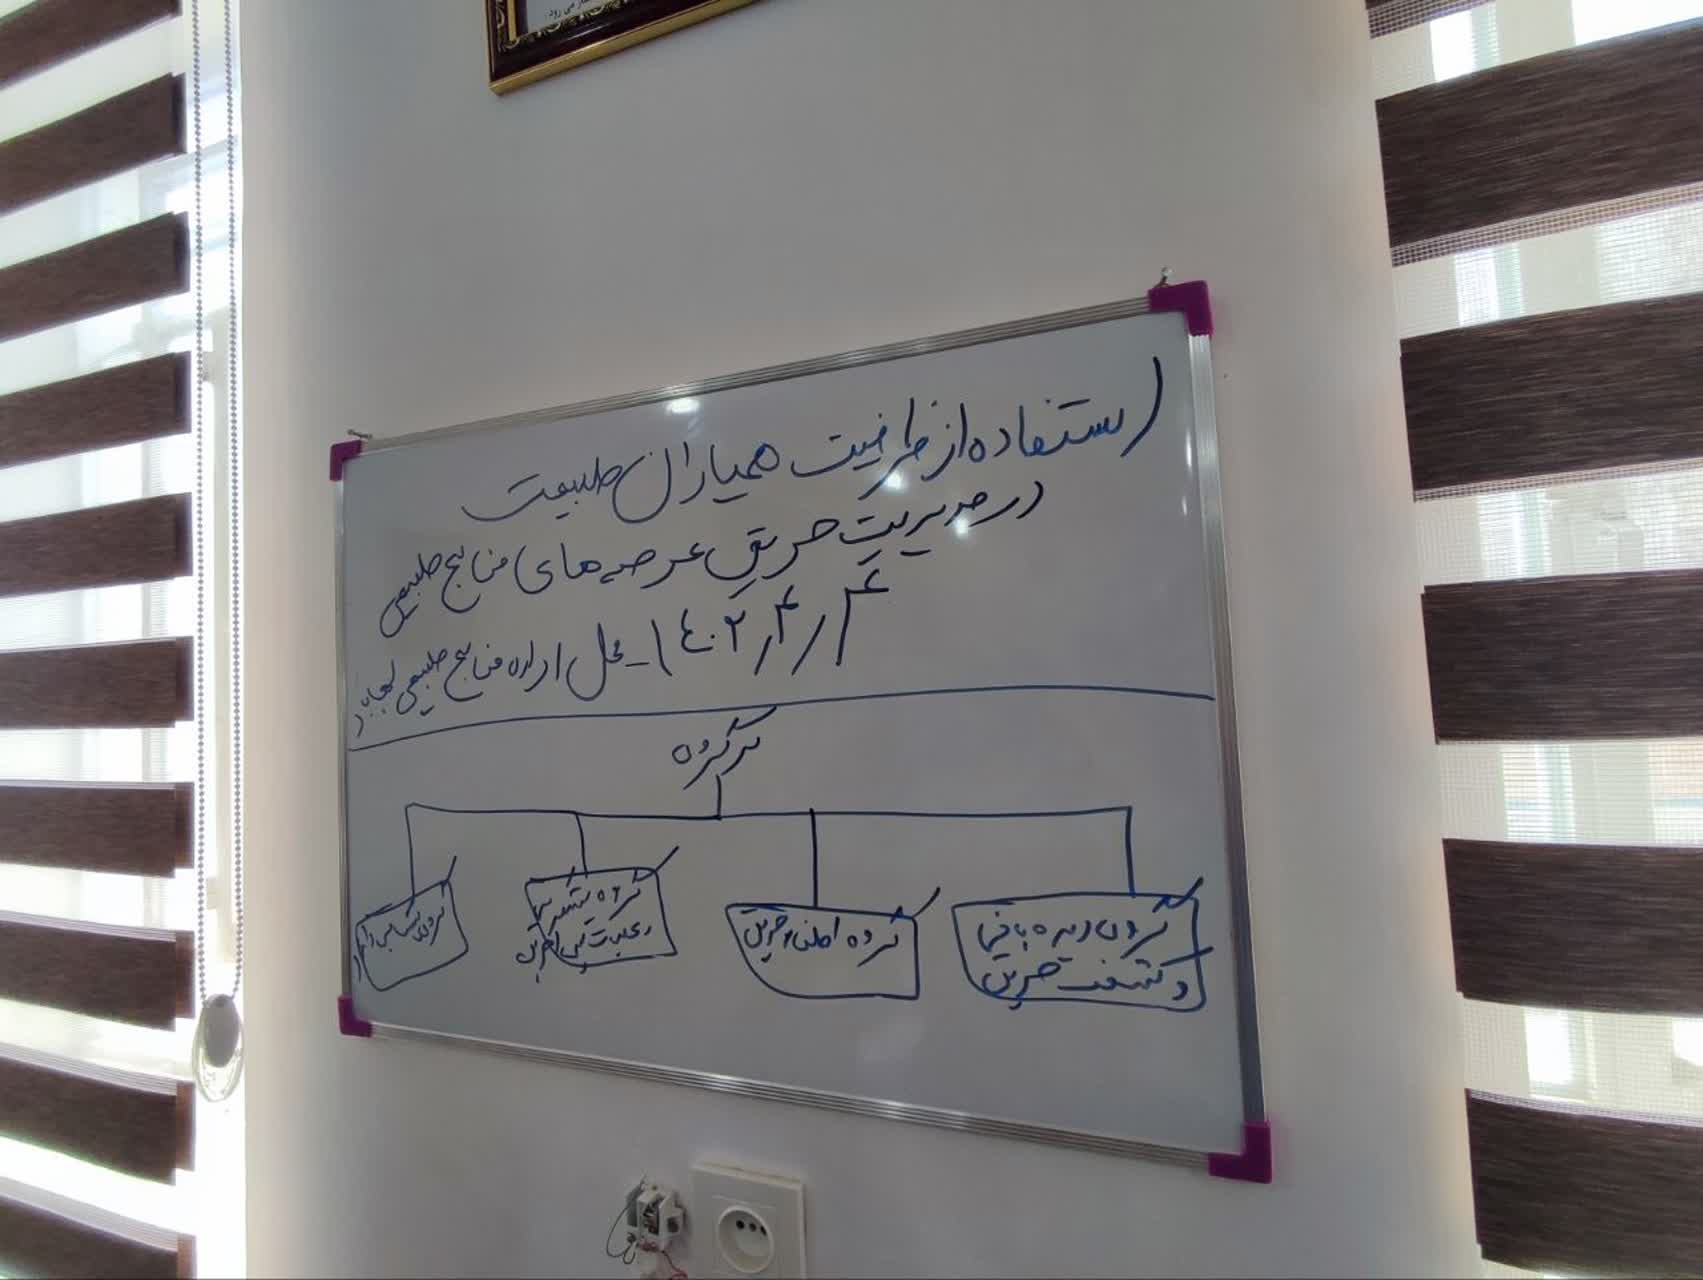 استفاده از ظرفیت همیاران طبیعت
در مدیریت حریق عرصه های منابع طبیعی
۱۴۰۲/۴/۴ - محل اداره منابع طبیعی
سرگروه
گروه دیده بانی
و کشف حریق
گروه اطفاء حریق
گروه
حریق
گروه